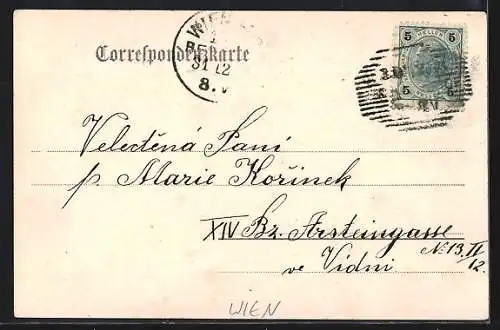 WIEN
Correspondenzkarte
31 12
8. V
5 HELLER 5
5 5
Velectěná Paní
p. Marie Kořinek
XIV Bz. Arnsteingasse
No. 13. II/12.
ve Vídni
WIEN